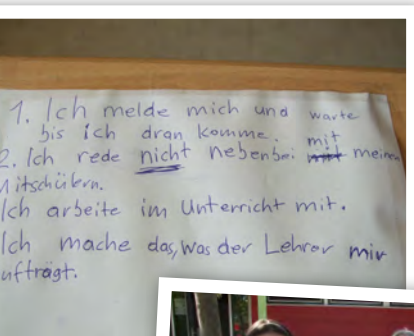 1. Ich melde mich und warte
bis ich dran komme.
2. Ich rede nicht nebenbei mit meinen
Mitschülern.
Ich arbeite im Unterricht mit.
Ich mache das, was der Lehrer mir
ufträgt.